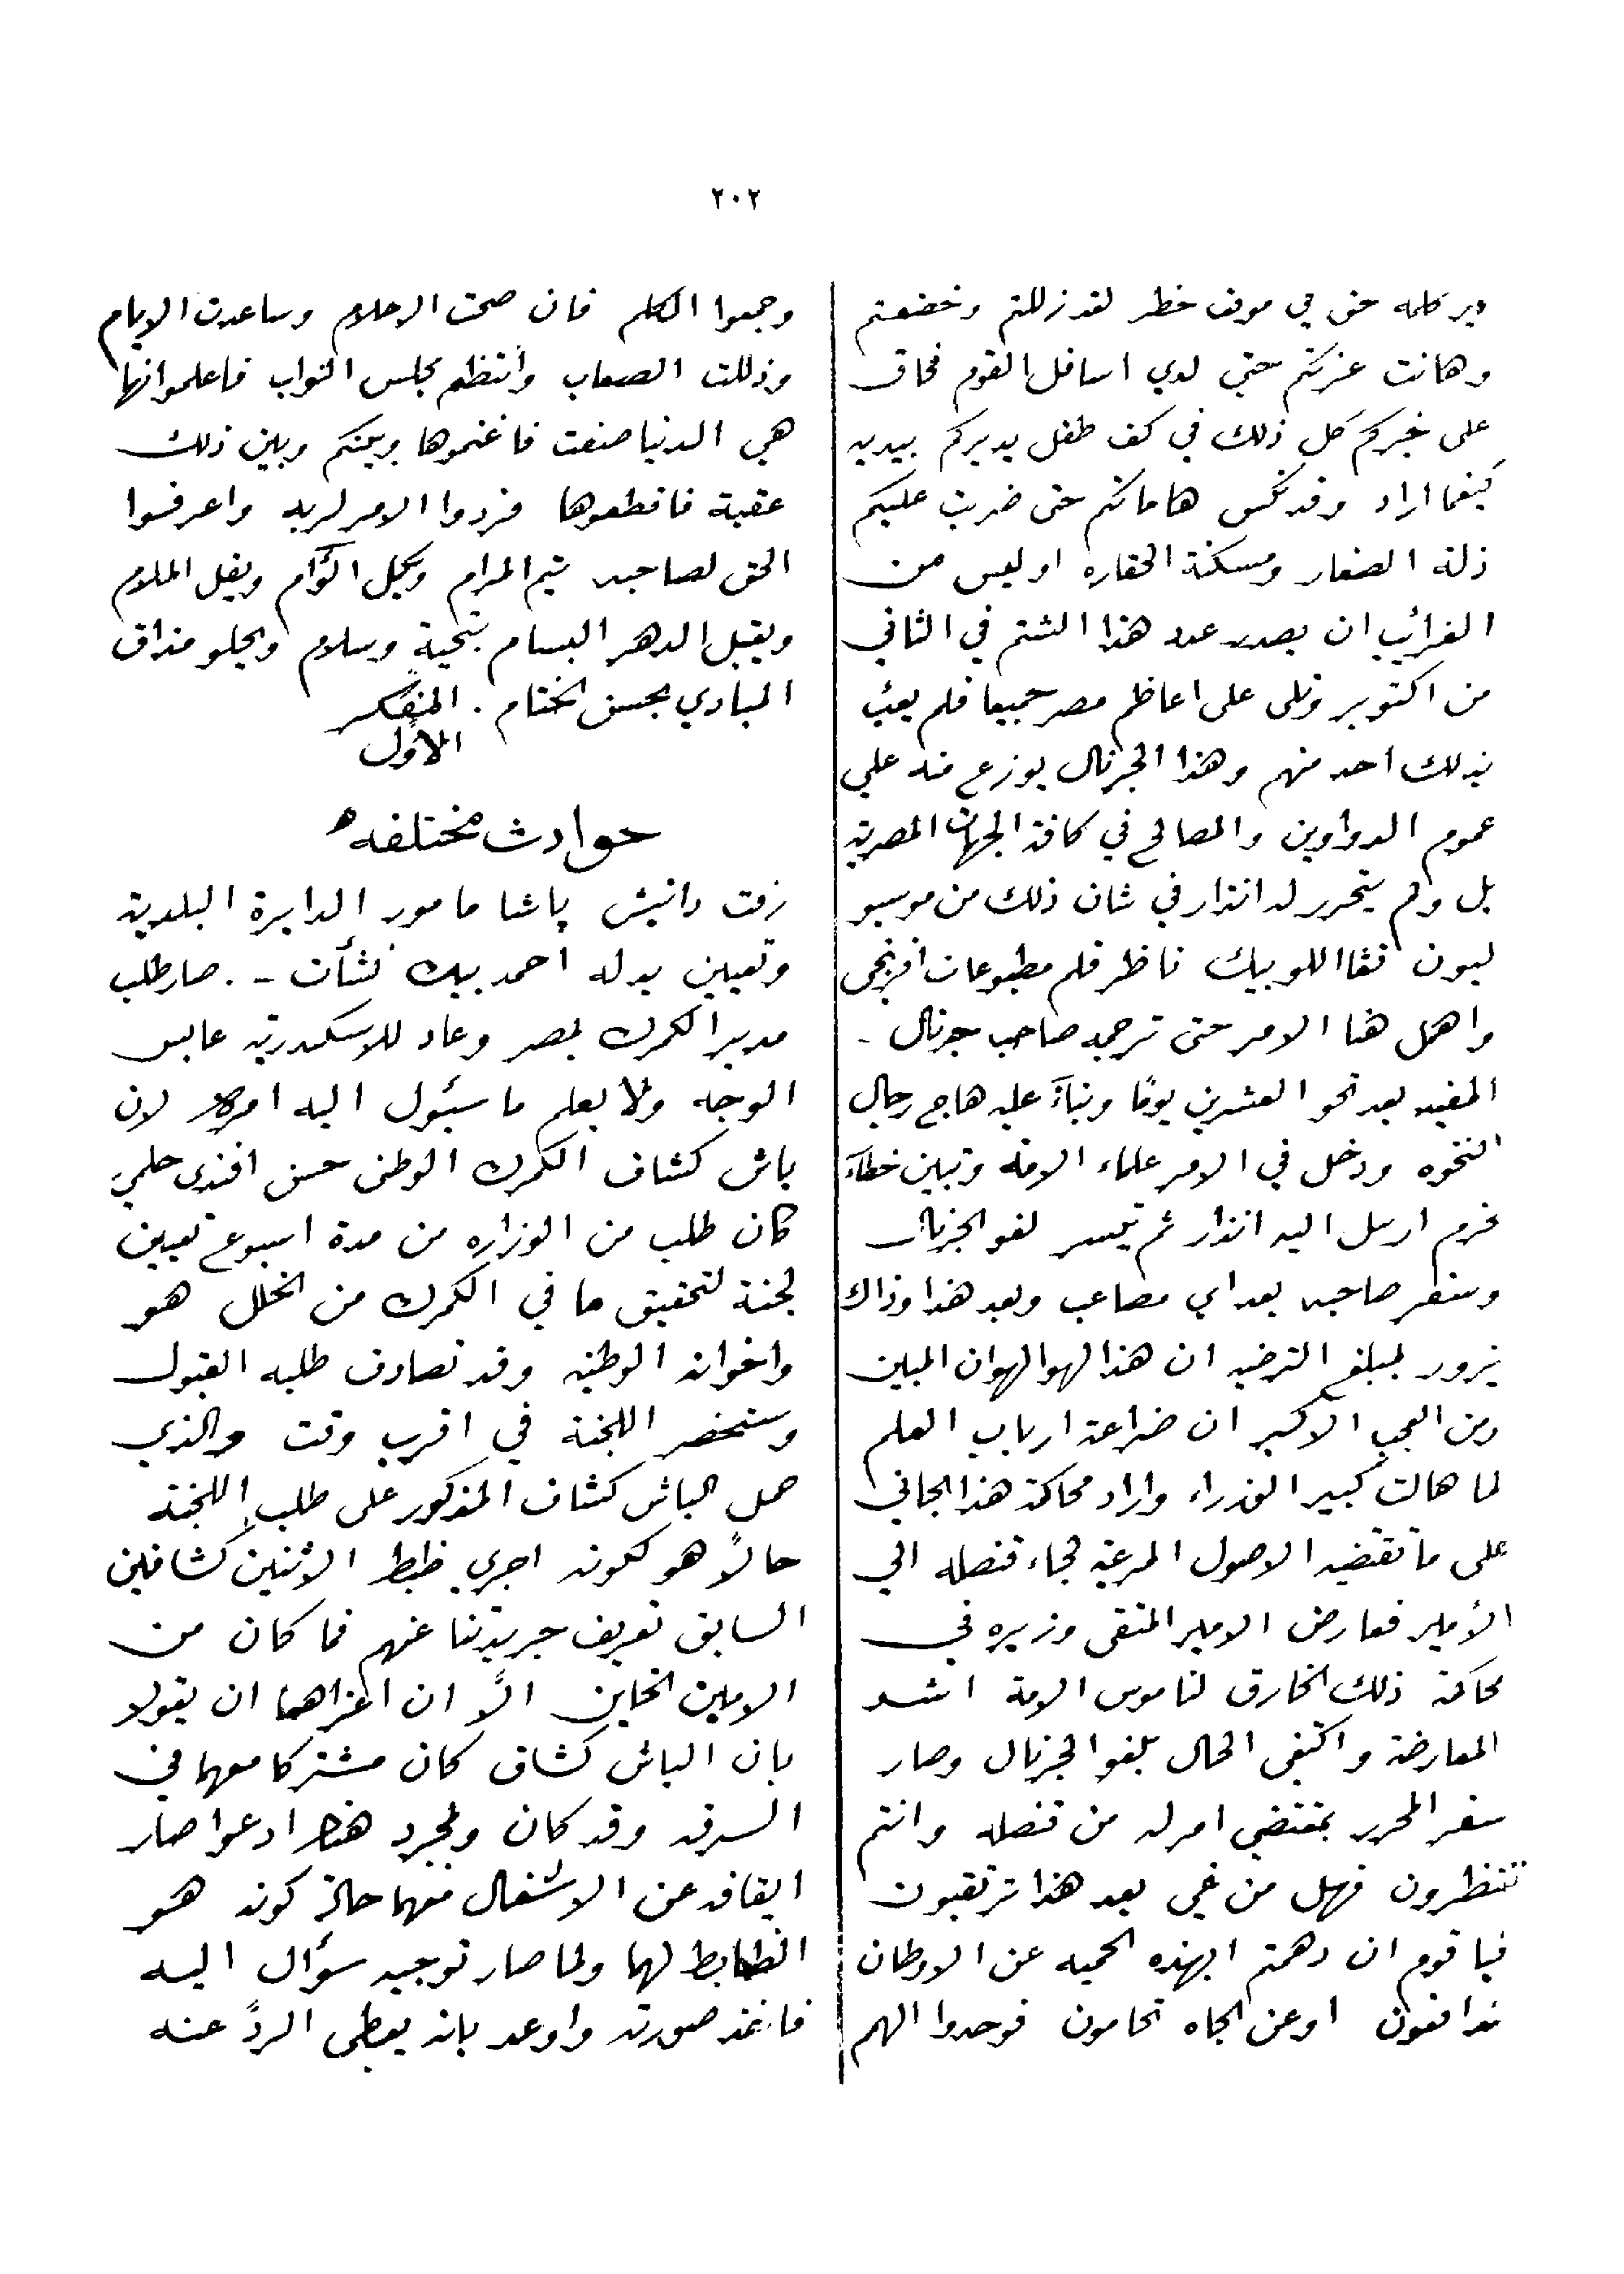 ٢٠٢
كلمه حق في موقف خطر لقد زللتم وخضعتم
وهانت عزتكم حتي لدي اسافل القوم فحاق
على غيركم كل ذلك في كف طفل يديركم بيديه
كيفما اراد وقد نكس هاماتكم حتى ضربت عليكم
ذلة الصغار ومسكنة الحقاره اوليس من
الغرائب ان يصدر عدد هذا الشتم في الثاني
من اكتوبر وتلى على اعاظم مصر جميعا فلم يعبُ
بذلك احد منهم وهذا الجرنال يوزع منه علي
عموم الدواوين والمصالح في كافة الجهات المصرية
بل ولم يتحرر له انذار في شان ذلك من موسيو
ليون اللوبيك ناظر قلم مطبوعات افرنجى
واهمل هذا الامر حتى ترجمه صاحب جرنال -
المفيد بعد نحو العشرين يومًا وبناءً عليه هاج رجال
النخوه ودخل في الامر علماء الامة وتبين خطاءَ
غرم ارسل اليه انذار ثم تيسر لغو الجرنال
وسفر صاحبه بعد اي مصاعب وبعد هذا وذاك
يزور لمبلغ الترضيه ان هذا لهو الهوان المبين
ومن العجب الاكبر ان ضراعة ارباب العلم
لما هالت كبير الوزراء واراد محاكمة هذا الجاني
على ما تقتضيه الاصول المرعية فجاء قنصله الي
الأمير فعارض الامير المتقى وزيره في
محاكمة ذلك الخارق لناموس الامة اشد
المعارضة واكتفى الحال بلغو الجرنال وصار
سفر المحرر بمقتضي امر له من قنصله وانتم
تنتظرون فهل من غي بعد هذا ترتقبون
فيا قوم ان دهمتم ابهذه الحميه عن الاوطان
تدافعون اوعن الجاه تحامون فوحدوا الهمم
وجمعوا الكلم فان صحت الاحلام وساعدت الايام
وذللت الصعاب وأنتظم مجلس النواب فاعلموا انها
هي الدنيا صنعت فاغنموها وبينكم وبين ذلك
عقبة فاقطعوها فردوا الامر لربه واعرفوا
الحق لصاحبه يتم المرام ويكمل الوَّام ويقل الملام
ويقبل الدهر البسام بتحية وسلام ويحلو مذاق
المبادي بحسن الختام . المفكر
الأول
حوادث مختلفه
رفت دانيش پاشا مامور الدايرة البلدية
وتعيين بدله احمد بيك نشأت -. صار طلب
مدير الكمرك بمصر وعاد للاسكندرية عابس
الوجه ولا يعلم ما سيئول اليه امره لان
باش كشاف الكمرك الوطنى حسن افندى حلمي
كان طلب من الوزاره من مدة اسبوع تعيين
لجنة لتحقيق ما في الكمرك من الخلل هو
واخوانه الوطنيه وقد تصادف طلبه القبول
وستحضر اللجنة في اقرب وقت والذي
حمل الباش كشاف المذكور على طلب اللجنة
حالاً هو لكونه اجري ظبط الاثنين كشافين
السابق تعريف جريدتنا عنهم فما كان من
الامين الخاين الاَّ ان اغراهما ان يقولا
بان الباش كشاف كان مشتركا معهما في
السرقه وقد كان ولمجرد هذا ادعوا صار
ايقافه عن الاشغال معهما حالة كونه هو
الظابط لهما ولما صار توجيه سؤال اليه
فاخذ صورته واوعد بانه يعطى الردّ عنه